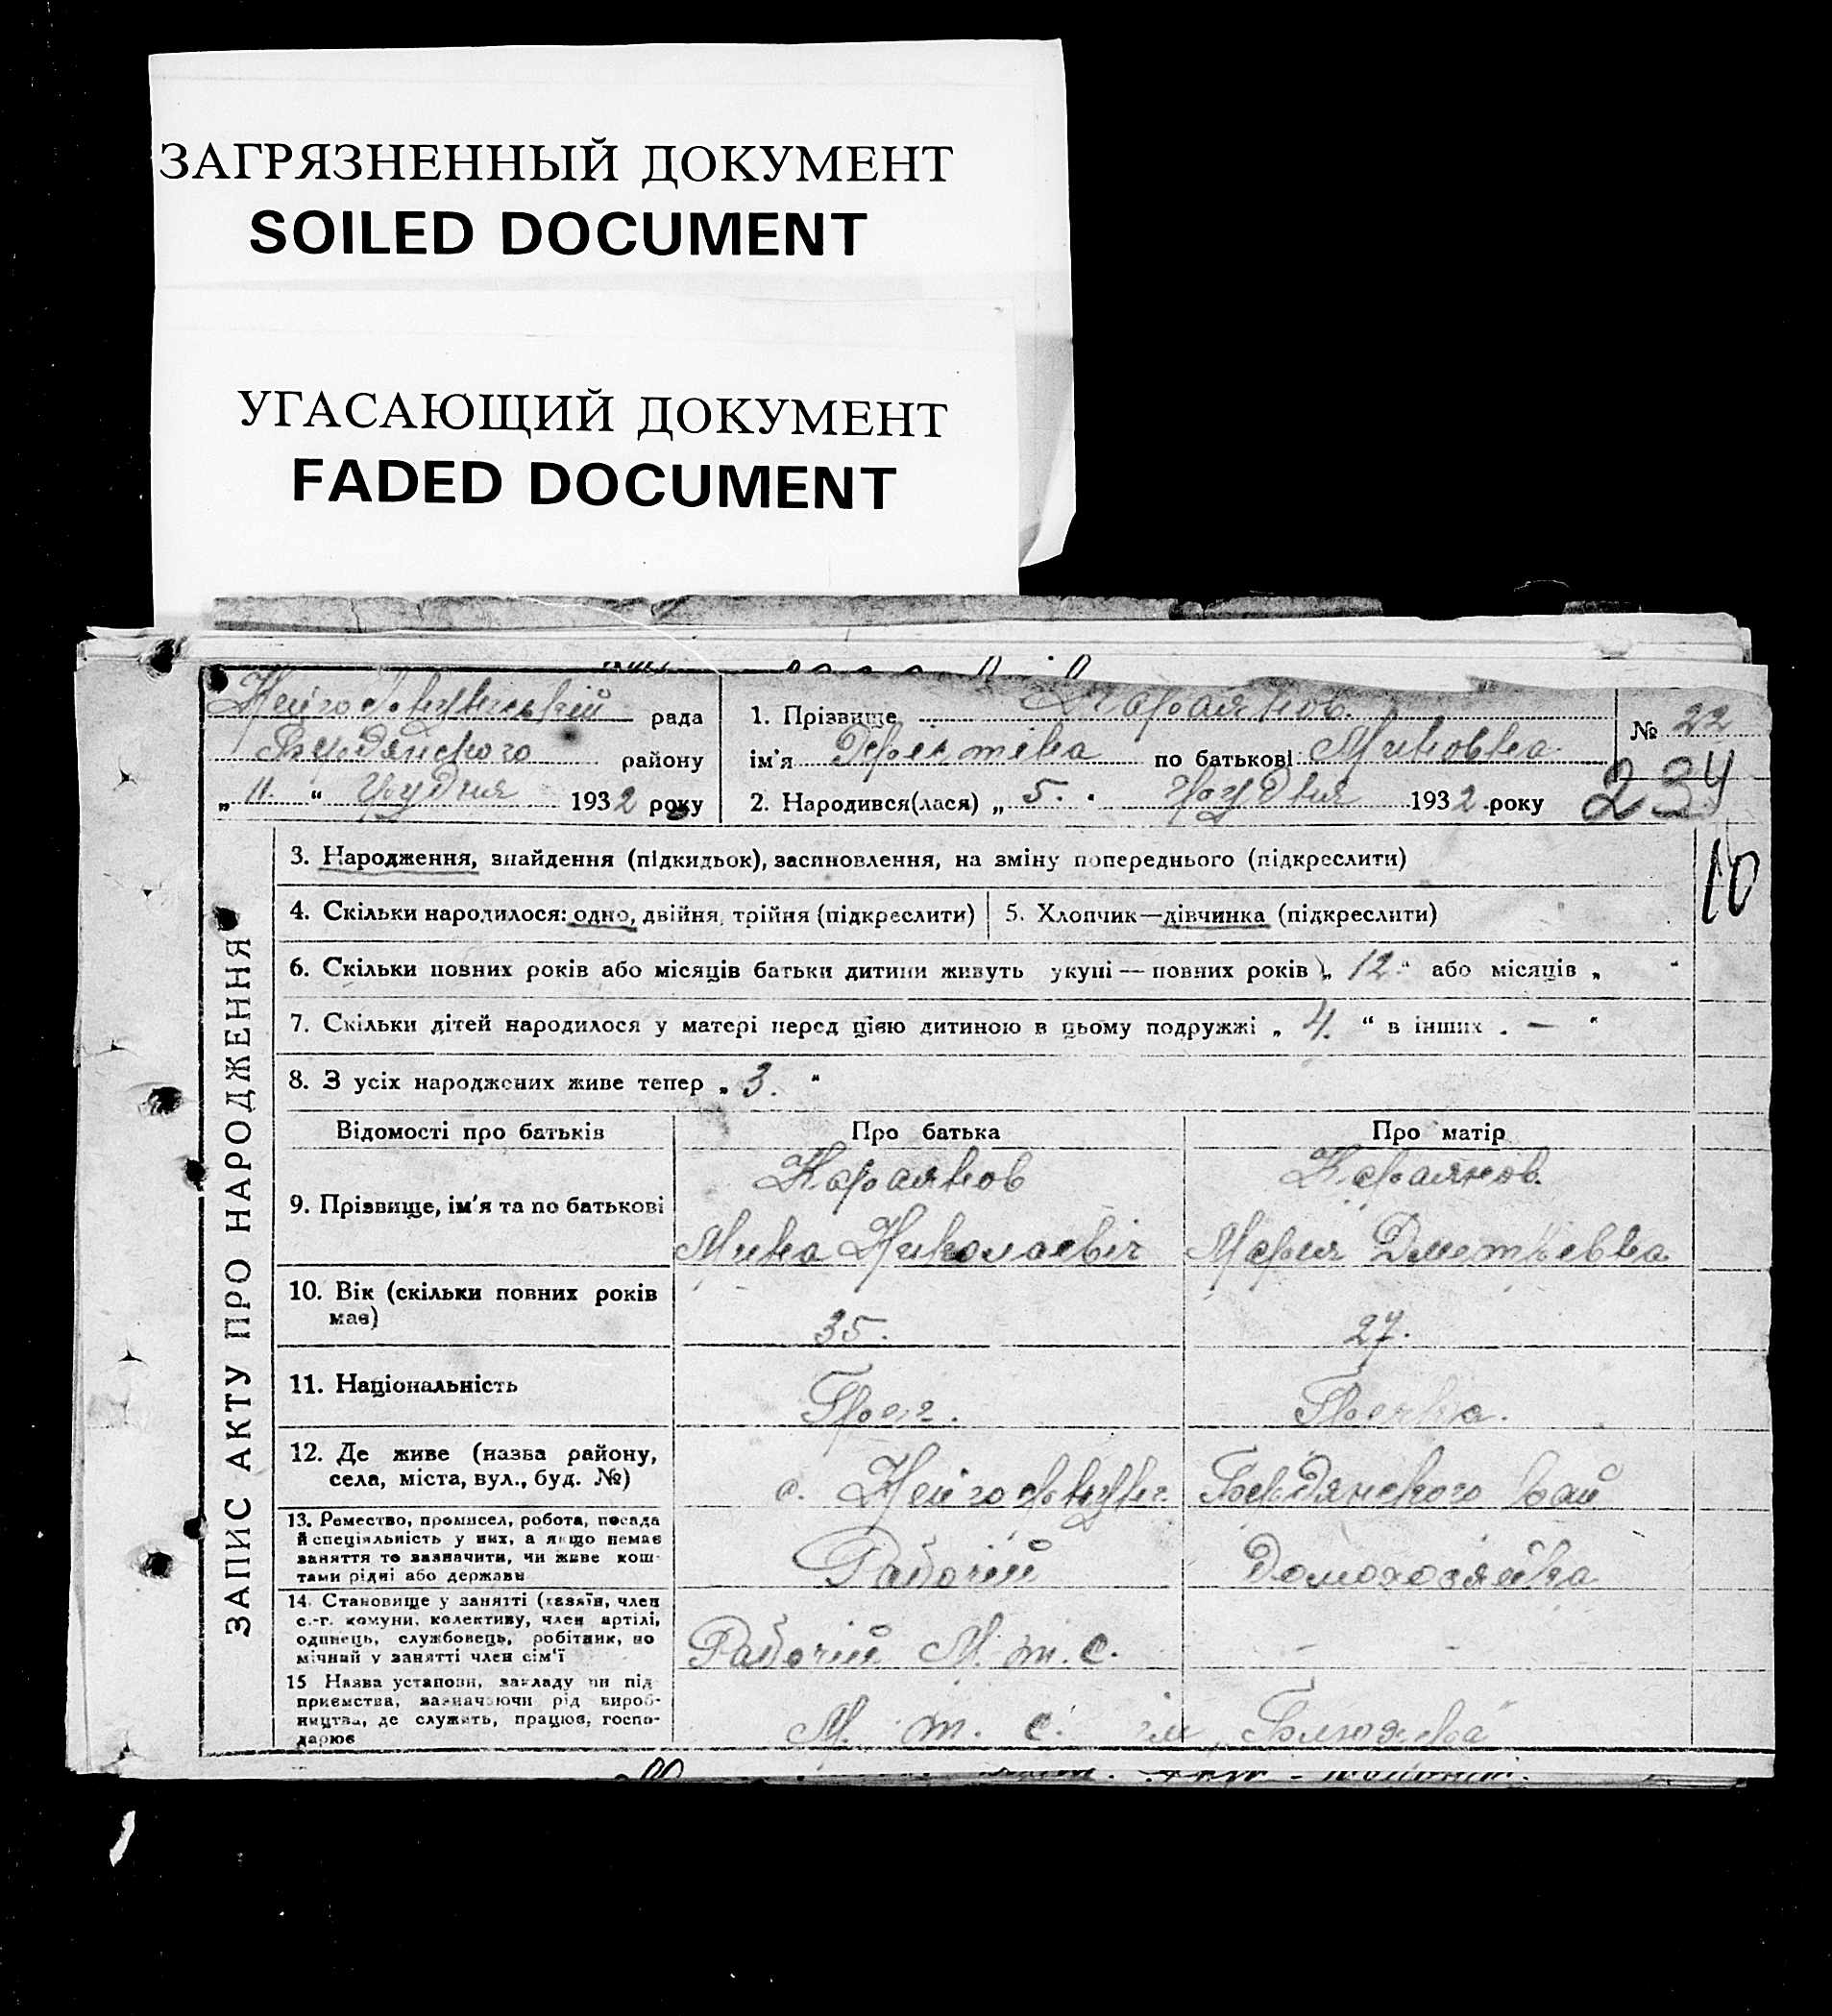 ЗАГРЯЗНЕННЫЙ ДОКУМЕНТ
SOILED DOCUMENT
УГАСАЮЩИЙ ДОКУМЕНТ
FADED DOCUMENT
рада
района району
„ 11. “ Грудня 1932 року
1. Прізвище Караянов.
ім'я Христина по батькові Миновна
2. Народився(лася) „ 5. “ Грудня 1932 року
№ 22
234
10
ЗАПИС АКТУ ПРО НАРОДЖЕННЯ
3. Народження, знайдення (підкидьок), засиновлення, на зміну попереднього (підкреслити)
4. Скільки народилося: одно, двійня, трійня (підкреслити)
5. Хлопчик—дівчинка (підкреслити)
6. Скільки повних років або місяців батьки дитини живуть укупі — повних років „ 12 “ або місяців „ “
7. Скільки дітей народилося у матері перед цією дитиною в цьому подружжі „ 4. “ в інших „ — “
8. З усіх народжених живе тепер „ 3. “
Відомості про батьків
Про батька
Про матір
9. Прізвище, ім'я та по батькові
Караянов
Мина Николаевіч
Караянов.
Мария Дмитревна
10. Вік (скільки повних років
має)
35.
27.
11. Національність
Грек.
Гречка.
12. Де живе (назва району,
села, міста, вул., буд. №)
с. Бердянского рай
13. Ремество, промисел, робота, посада
й спеціяльність у них, а якщо немає
заняття то зазначити, чи живе кош-
тами рідні або держави
Рабочій
Домохозяйка
14. Становище у занятті (хазяїн, член
с.-г. комуни, колективу, член артілі,
одинець, службовець, робітник, по
мічний у занятті член сім'ї
Рабочій М. т. с.
- -
15 Назва установи, закладу чи під
приємства, зазначаючи рід вироб-
ництва, де служить, працює, госпо-
дарює
М. т. с. им